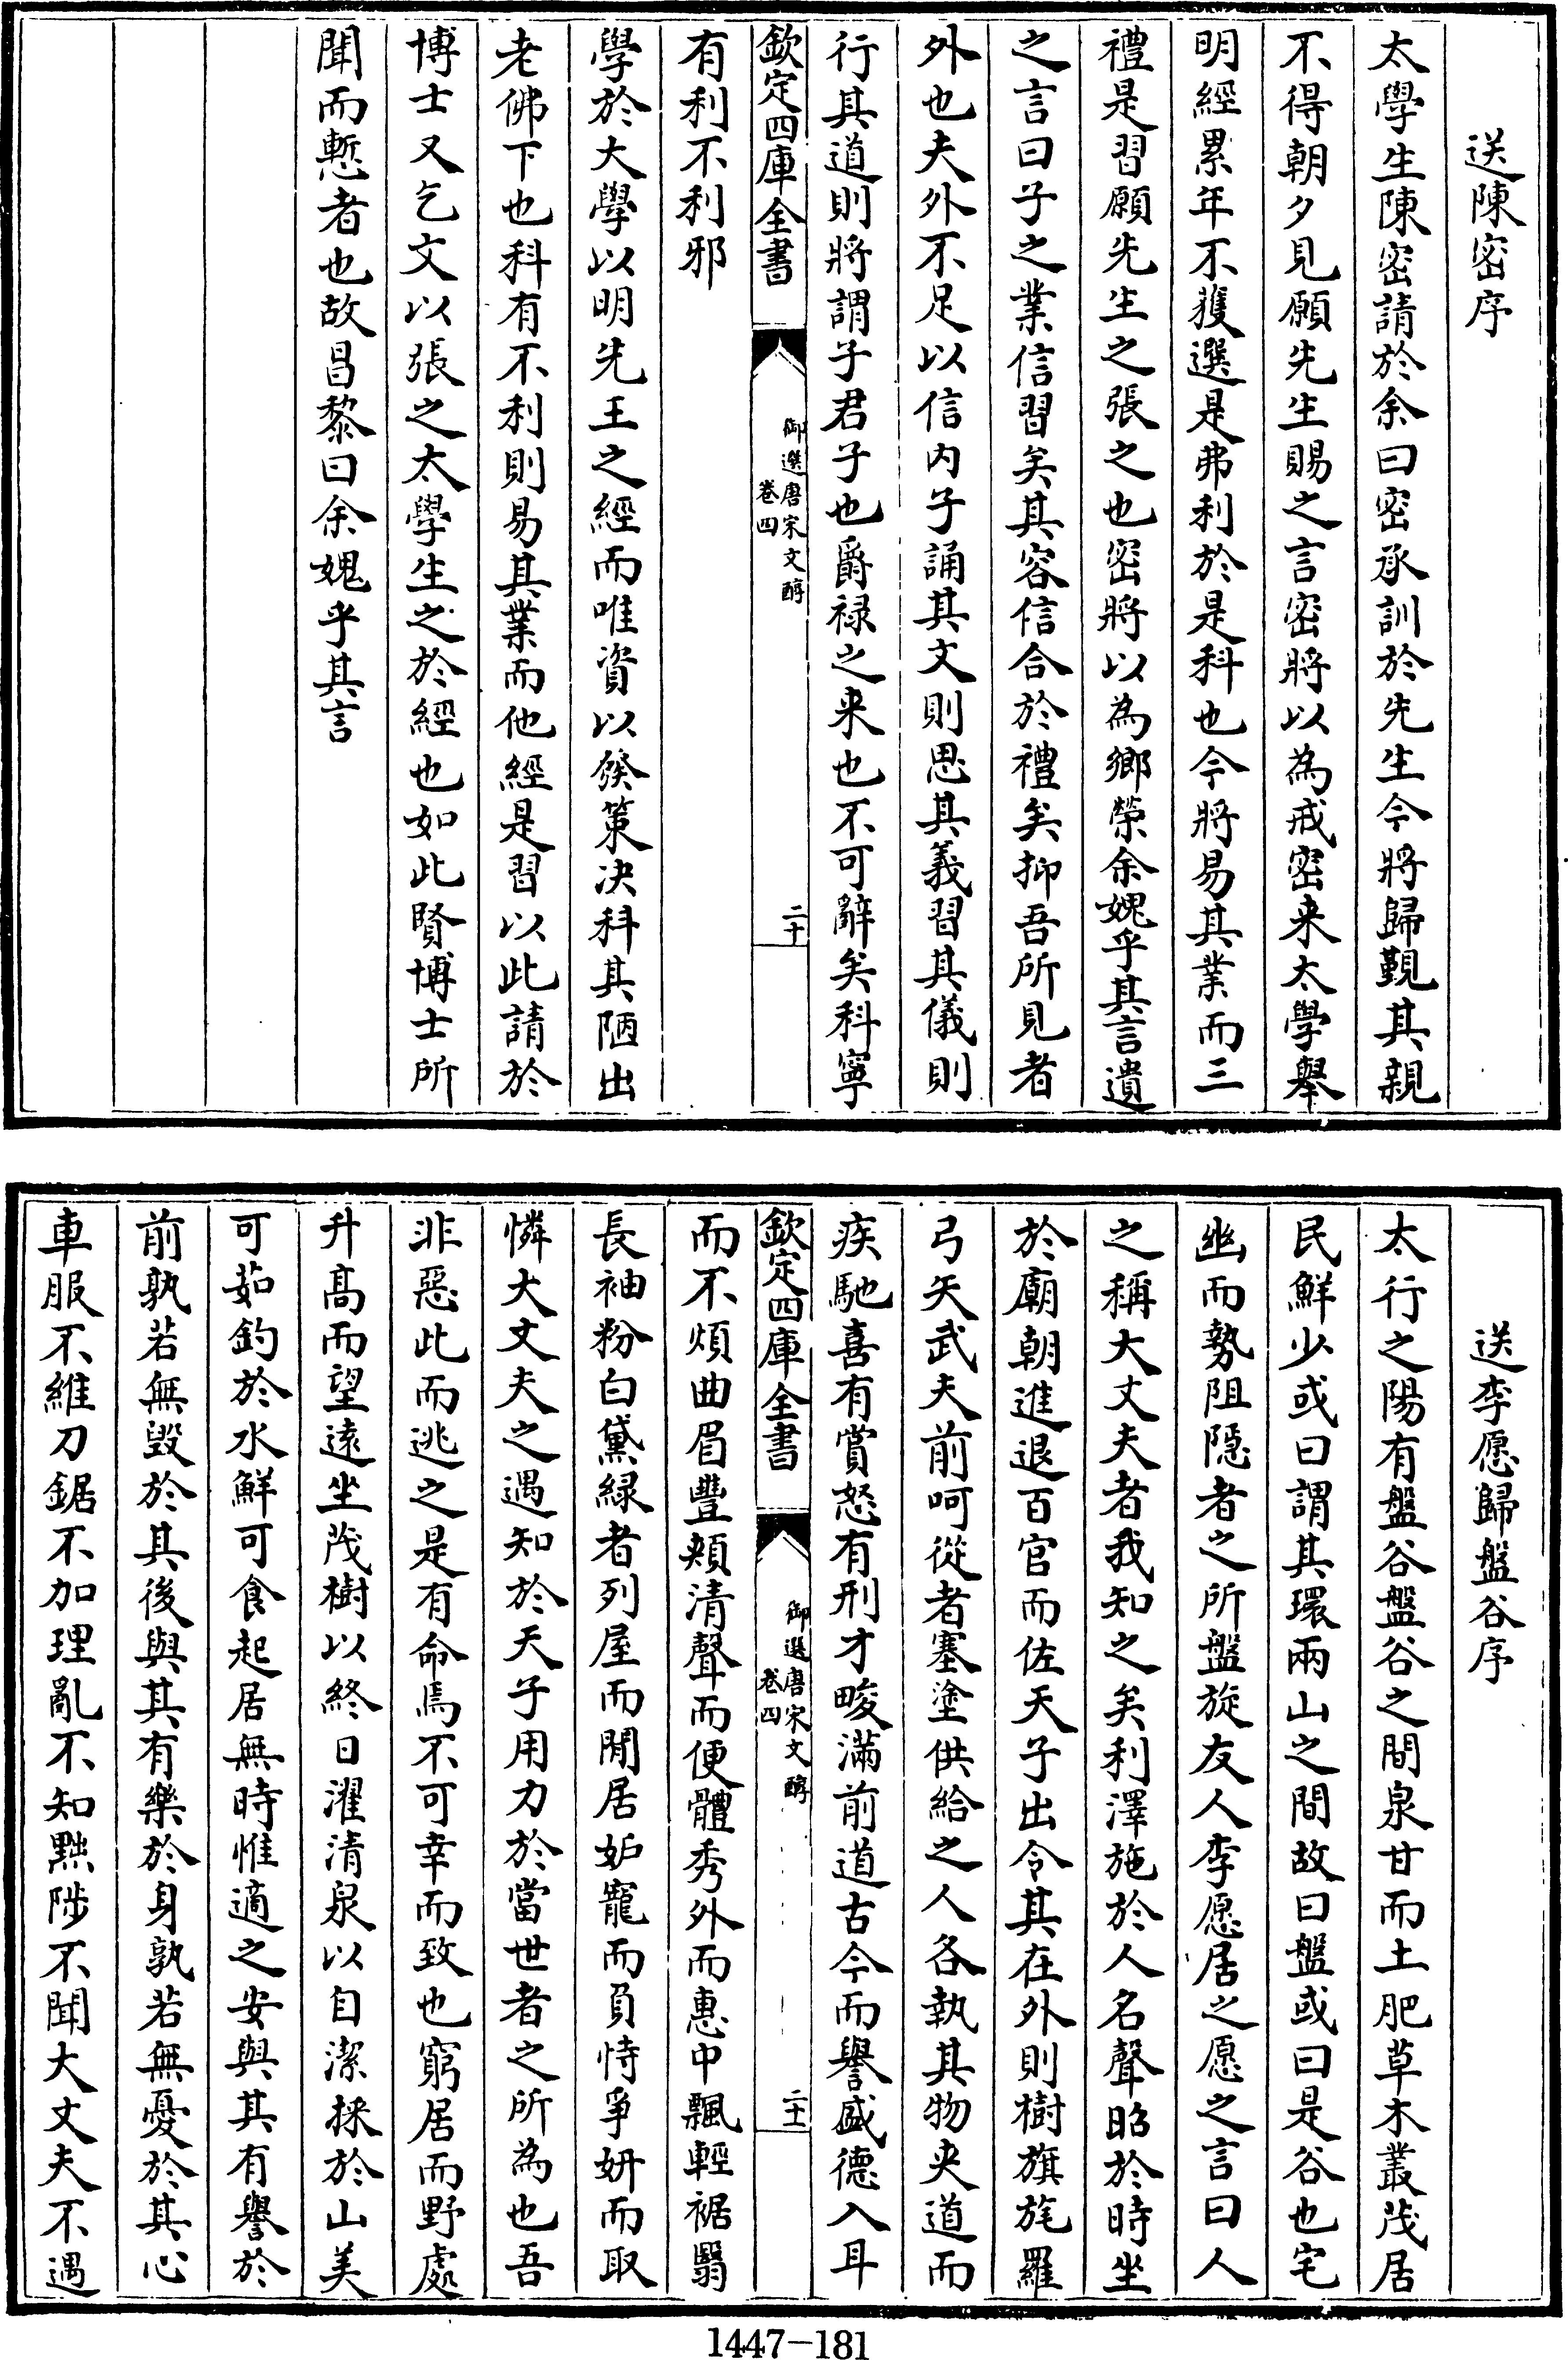 送陳密序
太學生陳密請於余曰密承訓於先生今將歸覲其親
不得朝夕見願先生賜之言密將以為戒密来太學舉
明經累年不獲選是弗利於是科也今將易其業而三
禮是習願先生之張之也密將以為鄉榮余媿乎其言遺
之言曰子之業信習矣其容信合於禮矣抑吾所見者
外也夫外不足以信内子誦其文則思其義習其儀則
行其道則將謂子君子也爵禄之来也不可辭矣科寧
欽定四庫全書
御選唐宋文醇
卷四
二十
有利不利邪
學於大學以明先王之經而唯資以發策决科其陋出
老佛下也科有不利則易其業而他經是習以此請於
博士又乞文以張之太學生之於經也如此賢博士所
聞而慙者也故昌黎曰余媿乎其言
送李愿歸盤谷序
太行之陽有盤谷盤谷之間泉甘而土肥草木叢茂居
民鮮少或曰謂其環兩山之間故曰盤或曰是谷也宅
幽而勢阻隱者之所盤旋友人李愿居之愿之言曰人
之稱大丈夫者我知之矣利澤施於人名聲昭於時坐
於廟朝進退百官而佐天子出令其在外則樹旗旄羅
弓矢武夫前呵從者塞塗供給之人各執其物夾道而
疾馳喜有賞怒有刑才畯滿前道古今而譽盛德入耳
欽定四庫全書
御選唐宋文醇
卷四
二十一
而不煩曲眉豐頰清聲而便體秀外而惠中飄輕裾翳
長袖粉白黛緑者列屋而閒居妬寵而負恃爭妍而取
憐大丈夫之遇知於天子用力於當世者之所為也吾
非惡此而逃之是有命焉不可幸而致也窮居而野處
升高而望遠坐茂樹以終日濯清泉以自潔採於山美
可茹釣於水鮮可食起居無時惟適之安與其有譽於
前孰若無毁於其後與其有樂於身孰若無憂於其心
車服不維刀鋸不加理亂不知黜陟不聞大丈夫不遇
1447-181